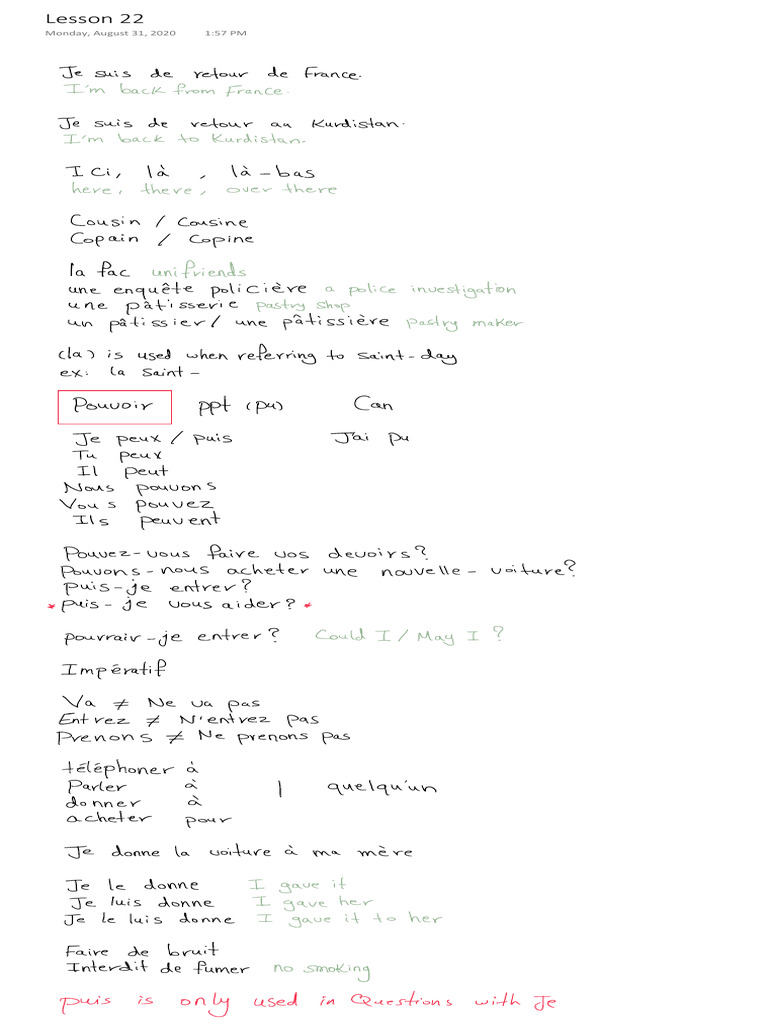 Lesson 22
Monday, August 31, 2020 1:57 PM
Je suis de retour de France.
I'm back from France.
Je suis de retour au Kurdistan.
I'm back to Kurdistan.
Ici, là , là-bas
here, there, over there
Cousin / Cousine
Copain / Copine
la fac unifriends
une enquête policière a police investigation
une pâtisserie pastry shop
un pâtissier/ une pâtissière pastry maker
(la) is used when referring to saint-day
ex: la saint-
Pouvoir ppt (pu) Can
Je peux / puis J'ai pu
Tu peux
Il peut
Nous pouvons
Vous pouvez
Ils peuvent
Pouvez-vous faire vos devoirs?
Pouvons-nous acheter une nouvelle-voiture?
puis-je entrer?
* puis-je vous aider? *
pourrair-je entrer? Could I / May I ?
Impératif
Va ≠ Ne va pas
Entrez ≠ N'entrez pas
Prenons ≠ Ne prenons pas
téléphoner à
Parler à | quelqu'un
donner à
acheter pour
Je donne la voiture à ma mère
Je le donne I gave it
Je luis donne I gave her
Je le luis donne I gave it to her
Faire de bruit
Interdit de fumer no smoking
puis is only used in Questions with Je